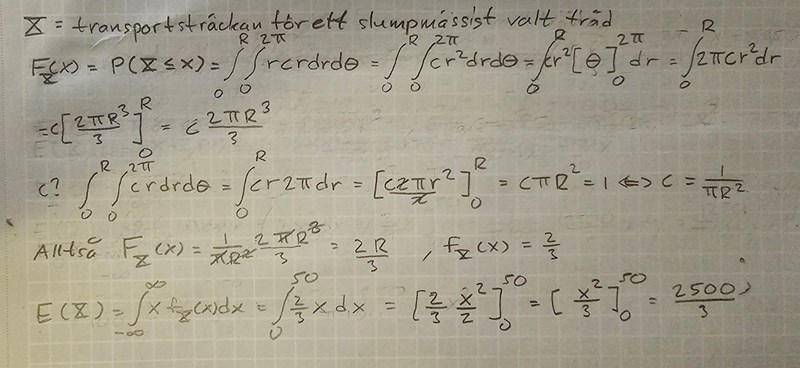 X = transportsträckan för ett slumpmässist valt träd
F_X(x) = P(X ≤ x) = ∫₀^R ∫₀^2π rcrdrdθ = ∫₀^R ∫₀^2π cr²drdθ = ∫₀^R cr²[θ]₀^2π dr = ∫₀^R 2πcr²dr
= c[2πR³/3]₀^R = c 2πR³/3
c? ∫₀^R ∫₀^2π crdrdθ = ∫₀^R cr2πdr = [c2πr²/2]₀^R = cπR² = 1 ⇔ c = 1/πR²
Alltså F_X(x) = 1/πR² 2πR³/3 = 2R/3 , f_X(x) = 2/3
E(X) = ∫_-∞^∞ x f_X(x)dx = ∫₀^50 2/3 x dx = [2/3 x²/2]₀^50 = [x²/3]₀^50 = 2500/3